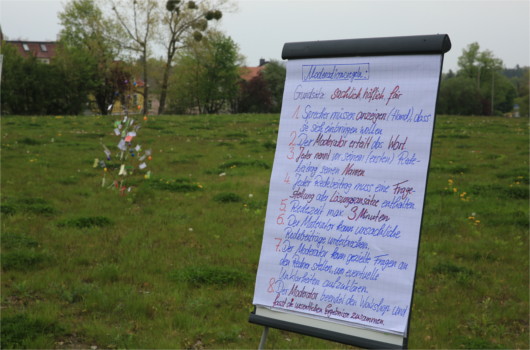 Moderationsregeln:
Grundsatz: sachlich höflich fair
1. Sprecher müssen anzeigen (Hand), dass
sie sich einbringen wollen
2. Der Moderator erteilt das Wort
3. Jeder nennt in seinem (ersten) Rede-
beitrag seinen Namen
4. Jeder Redebeitrag muss eine Frage-
stellung oder Lösungsansätze enthalten
5. Redezeit max. 3 Minuten
6. Der Moderator kann unsachliche
Redebeiträge unterbrechen.
7. Der Moderator kann gezielt Fragen an
den Redner stellen, um eventuelle
Unklarheiten aufzuklären.
8. Der Moderator beendet die und
fasst die wesentlichen Ergebnisse zusammen.